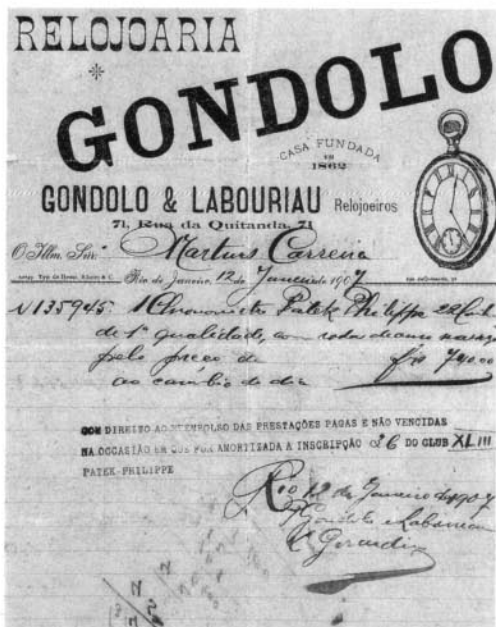 RELOJOARIA
GONDOLO
CASA FUNDADA
EM
1862
GONDOLO & LABOURIAU Relojoeiros
71, Rua da Quitanda, 71
O Illm. Snr. Martins Carreira
Rio de Janeiro, 12 de Janeiro de 1907
N 135945. 1 Chronometro Patek Philippe 22
de 1ª qualidade, com
pelo preço de frs 740.00
ao cambio do dia
COM DIREITO AO REEMBOLSO DAS PRESTAÇÕES PAGAS E NÃO VENCIDAS
NA OCCASIÃO EM QUE FOR AMORTIZADA A INSCRIPÇÃO 26 DO CLUB XLIII
PATEK-PHILIPPE
Rio 12 de Janeiro de 1907
Gondolo & Labouriau